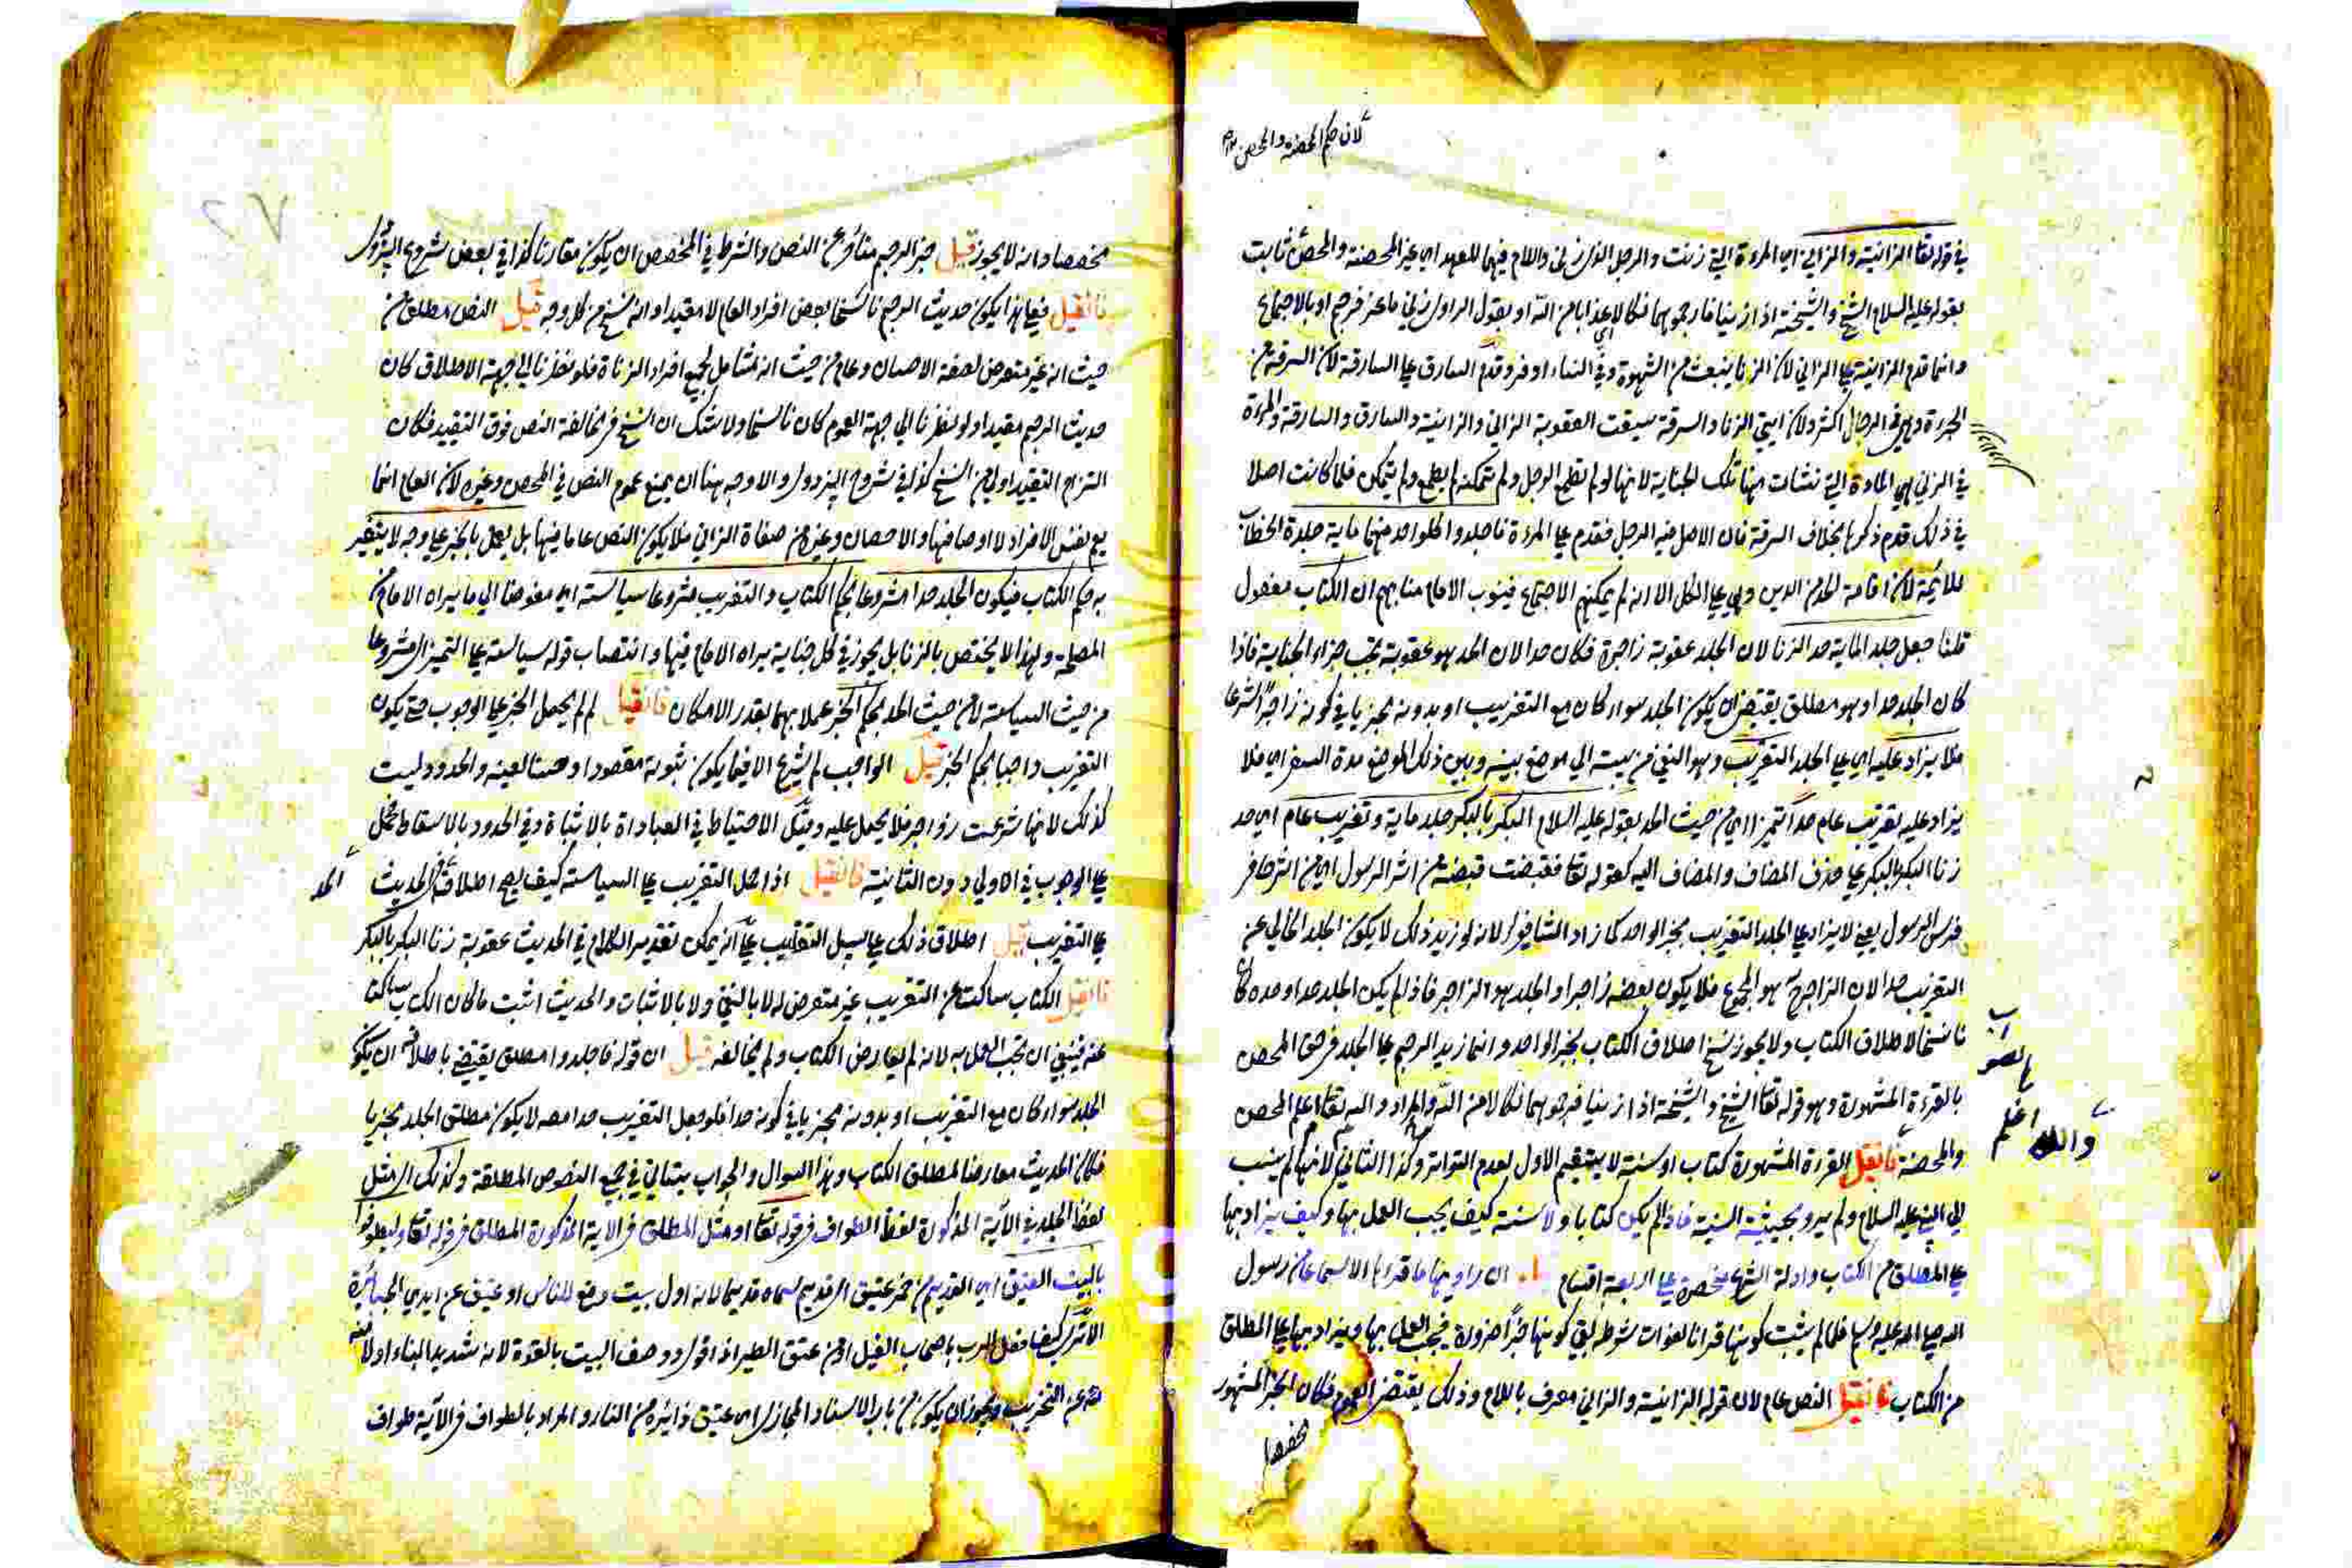 لان حكم المحصنة والمحصن
في قوله تعا الزانية والزاني اي المرءة التي زنت والرجل الذي زنى واللام فيهما للعهد اي غير المحصنة والمحصن ثابت
بقوله عليه السلام الشيخ والشيخة اذا زنيا فارجموهما نكالا اي عذابا من الله او بقول الراوي زنى ماعز فرجم او بالاجماع
وانما قدم الزانية على الزاني لان الزنا ينبعث من الشهوة وفي النساء اوفر وقدم السارق على السارقة لان السرقة من
الجرءة وهي في الرجال اكثر ولان ايتي الزنا والسرقة سيقت العقوبة الزاني والزانية والسارق والسارقة والمرءة
في الزنى هي المادة التي نشأت منها تلك الجناية لانها لو لم تطمع الرجل ولم تمكنه لم يطمع ولم يتمكن فلما كانت اصلا
في ذلك قدم ذكرها بخلاف السرقة فان الاصل فيه الرجل فقدم على المرءة فاجلدوا كل واحد منهما ماية جلدة الخطاب
للائمة لان اقامة الحد من الدين وهي على الكل الا انه لم يمكنهم الاجتماع فينوب الامام منابهم ان الكتاب مفعول
قلنا جعل جلد الماية حد الزنا لان الجلد عقوبة زاجرة فكان حدا لان الحد هو عقوبة تجب جزاء الجناية فاذا
كان الجلد حدا وهو مطلق يقتضي ان يكون الجلد سواء كان مع التغريب او بدونه مجزيا في كونه زاجرا شرعا
فلا يزاد عليه اي على الجلد التغريب وهو النفي من بيته الى موضع بينه وبين ذلك الموضع مدة السفر اي فلا
يزاد عليه تغريب عام حدا تمييز اي من حيث الحد بقوله عليه السلام البكر بالبكر جلد ماية وتغريب عام اي حد
زنا البكر بالبكر على حذف المضاف والمضاف اليه كقوله تعا فقبضت قبضة من اثر الرسول اي من اثر حافر
فرس الرسول يعني لا يزاد على الجلد التغريب بخبر الواحد كما زاد الشافعي لانه لو زيد ذلك لا يكون الجلد الخالي عن
التغريب حدا لان الزاجر ح هو المجموع فلا يكون بعضه زاجرا والجلد هو الزاجر فاذا لم يكن الجلد حدا وحده كان
ناسخا لاطلاق الكتاب ولا يجوز نسخ اطلاق الكتاب بخبر الواحد وانما زيد الرجم على الجلد في حق المحصن
بالقرءة المشهورة وهو قوله تعا الشيخ والشيخة اذا زنيا فارجموهما نكالا من الله والمراد والله تعا اعلم المحصن
والمحصنة فان قيل القرءة المشهورة كتاب او سنة لا يستقيم الاول لعدم التواتر وكذا الثاني لانها لم ينسب
الى النبي عليه السلام ولم يرو بحيثية السنية فاذا لم يكن كتابا ولا سنة كيف يجب العمل بها وكيف يزاد بها
على المطلق من الكتاب وادلة الشرع منحصرة على اربعة اقسام ان راويها ما قراها الا سماعا من رسول
الله صلى الله عليه وسلم فلما لم يثبت كونها قرانا لفوات شرطه بقي كونها خبرا ضرورة فيجب العمل بها ويزاد بها على المطلق
من الكتاب فان قيل النص عام لان قوله الزانية والزاني معرف باللام وذلك يقتضي العموم فكان الخبر المشهور
مخصصا
والله اعلم
مخصصا وانه لا يجوز قيل خبر الرجم متأخر عن النص والشرط في المخصص ان يكون مقارنا كذا في بعض شروح البزدوي
فان قيل فعلى هذا يكون حديث الرجم ناسخا بعض افراد العام لا مقيدا وانه نسخ من كل وجه قيل النص مطلق من
حيث انه غير متعرض لصفة الاحصان وعام من حيث انه شامل لجميع افراد الزناة فلو نظرنا الى جهة الاطلاق كان
حديث الرجم مقيدا ولو نظرنا الى جهة العموم كان ناسخا ولا شك ان النسخ في مخالفة النص فوق التقييد فكان
التزام التقييد اولى من النسخ كذا في شروح البزدوي والاوجه هنا ان يمنع عموم النص في المحصن وغيره لان العام انما
يعم نفس الافراد لا اوصافها والاحصان وغيره من صفاة الزاني فلا يكون النص عاما فيها بل يعمل بالخبر على وجه لا يتغير
به حكم الكتاب فيكون الجلد حدا مشروعا بحكم الكتاب والتغريب مشروعا سياسة اي مفوضا الى ما يراه الامام من
المصلحة ولهذا لا يختص بالزنا بل يجوز في كل جناية يراه الامام فيها وانتصاب قوله سياسة على التمييز اي مشروعا
من حيث السياسة لا من حيث الحد بحكم الخبر عملا بهما بقدر الامكان فان قيل لم لم يحمل الخبر على الوجوب حتى يكون
التغريب واجبا بحكم الخبر قيل الواجب لم يشرع الا فيما يكون ثبوته مقصودا وحسنا لعينه والحدود ليست
كذلك لانها شرعت زواجر فلا يحمل عليه ولكن الاحتياط في العباداة بالاثباة وفي الحدود بالاسقاط فحمل
على الوجوب في الاولى دون الثانية فان قيل اذا حمل التغريب على السياسة كيف يصح اطلاق في الحديث الحد
على التغريب قيل اطلاق ذلك على سبيل التغليب على انه يمكن تقدير الكلام في الحديث عقوبة زنا البكر بالبكر
فان قيل الكتاب ساكت عن التغريب غير متعرض له لا بالنفي ولا بالاثبات والحديث اثبت ما كان الكتاب ساكتا
عنه فينبغي ان تجب العمل به لانه لم يعارض الكتاب ولم يخالفه قيل ان قوله فاجلدوا مطلق يقتضي باطلاقه ان يكون
الجلد سواء كان مع التغريب او بدونه مجزيا في كونه حدا فلو جعل التغريب حدا معه لا يكون مطلق الجلد مجزيا
فكان الحديث معارضا لمطلق الكتاب وهذا السوال والجواب يتأتى في جميع النصوص المطلقة وكذلك اي مثل
لفظ الجلد في الاية المذكورة لفظ الطواف في قوله تعا او مثل المطلق في الاية المذكورة المطلق في قوله تعا وليطوفوا
بالبيت العتيق اي القديم من خمر عتيق اي قديم سماه قديما لانه اول بيت وضع للناس او عتيق عن ايدي الجبابرة
الا ترى كيف فعل الرب باصحاب الفيل او من عتق الطير اذا قوي ووصف البيت بالقوة لانه شديد البناء او لامنه
عن التخريب ويجوز ان يكون من باب الاسناد المجازي اي عتيق زائره من النار والمراد بالطواف في الاية طواف